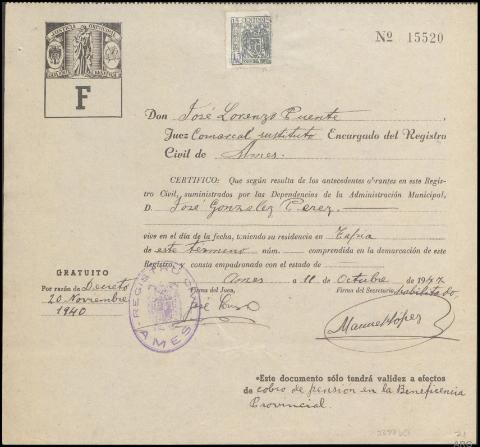 JUSTICIA MUNICIPAL
F
15 CENTIMOS
Nº 15520
Don José Lorenzo Puente
Juez Comarcal sustituto Encargado del Registro
Civil de Ames.
CERTIFICO: Que según resulta de los antecedentes obrantes en este Regis-
tro Civil, suministrados por las Dependencias de la Administración Municipal,
D. José González Perez
vive en el día de la fecha, teniendo su residencia en Tapia
de este termino núm. comprendida en la demarcación de este
Registro y consta empadronado con el estado de
Ames a 11 de Octubre de 1947
GRATUITO
Por razón de Decreto
20 Noviembre
1940
Firma del Juez,
Firma del Secretario habilitado,
José
Manuel López
REGISTRO CIVIL
AMES
•Este documento sólo tendrá validez a efectos
de cobro de pensión en la Beneficencia
Provincial.